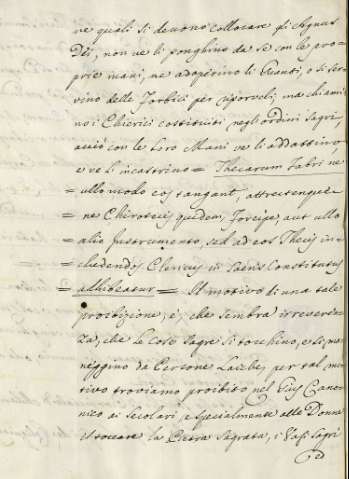 ne quali si devono collocare gl'Agnus
Dei, non ve li ponghino da se con le pro=
prie mani, ne adoprino li Guanti, o si ser=
vino delle Forbici per riporveli; ma chiami=
no i Chierici costituiti negl'ordini Sagri,
acciò con le loro Mani ve li addattino
e ve li incastrino = Thecarum Fabri ne
= ullo modo eos tangant, attrectentque
= ne Chirotecis quidem, Forcipe, aut ullo
= alio Instrumento, sed ad eos Thecis in=
= cludendos Clericus in Sacris Constitutus
= adhibeatur = Il motivo di una tale
proibizione, è, che sembra irreveren=
za, che le Cose Sagre si tocchino, e si ma=
neggino da Persone Laiche, per tal mo=
tivo troviamo proibito nel Jus Cano=
nico ai Secolari, e specialmente alle Donne
il toccare la Pietra Sagrata, i Vasi Sagri
ed